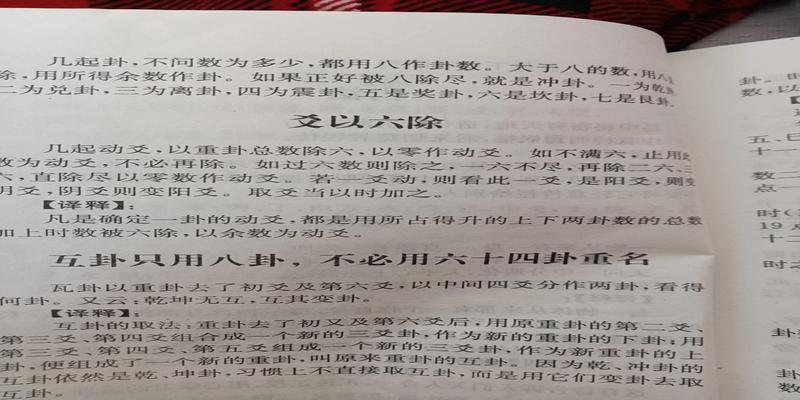 几起卦，不问数为多少，都用八作卦数。大于八的数，用八
除，用所得余数作卦。如果正好被八除尽，就是冲卦。一为乾卦，
二为兑卦，三为离卦，四为震卦，五是奖卦，六是坎卦，七是艮卦，
爻以六除
几起动爻，以重卦总数除六，以零作动爻。如不满六，止用此
数为动爻，不必再除。如过六数则除之，一六不尽，再除二六、三
六，直除尽以零数作动爻。若一爻动，则看此一爻，是阳爻，则变
阴爻，阴爻则变阳爻。取爻当以时加之。
【译释】：
凡是确定一卦的动爻，都是用所占得升的上下两卦数的总数
加上时数被六除，以余数为动爻。
互卦只用八卦，不必用六十四卦重名
瓦卦以重卦去了初爻及第六爻，以中间四爻分作两卦，看得
何卦。又云：乾坤无互，互其变卦。
【译释】：
互卦的取法：重卦去了初又及第六爻后，用原重卦的第二爻、
第三爻、第四爻组合成一个新的三爻卦，作为新的重卦的下卦；用
第三爻、第四爻、第五爻组成一个新的三爻卦，作为新重卦的上
卦，便组成了一个新的重卦，叫原来重卦的互卦。因为乾、冲卦的
互卦依然是乾、坤卦，习惯上不直接取互卦，而是用它们变卦去取
互卦。
卦。时
数，以
五、巳
十一
数二
点一
时（
19 点
十二
时之
卦
卦
数